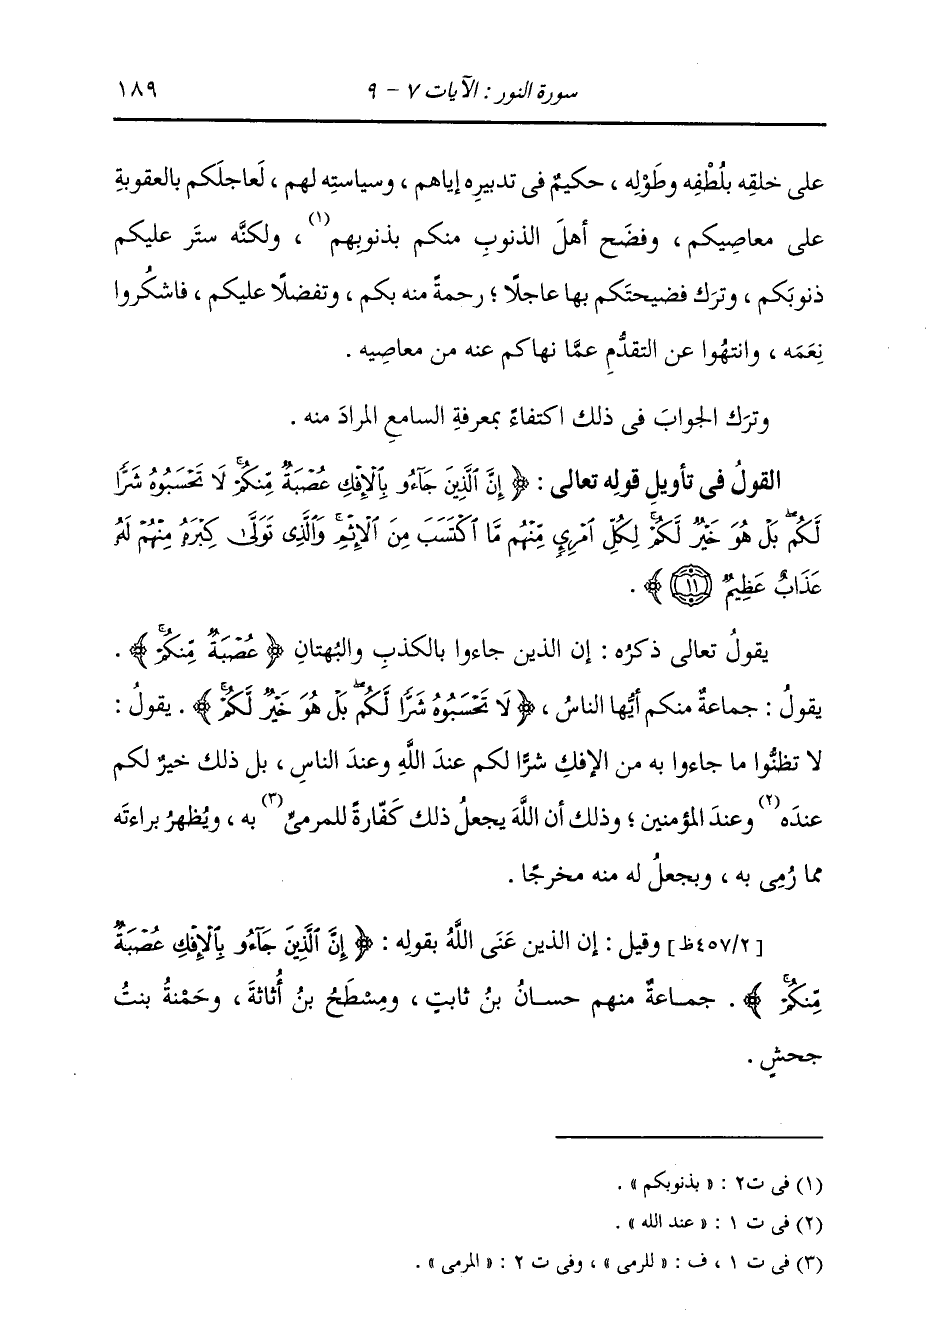 سورة النور : الآيات ٧ - ٩ ١٨٩
على خلقِه بلُطْفِه وطَوْلِه ، حكيمٌ فى تدبيرِه إياهم ، وسياستِه لهم ، لَعاجلَكم بالعقوبةِ
على معاصِيكم ، وفضَح أهلَ الذنوبِ منكم بذنوبِهم(١) ، ولكنَّه ستَر عليكم
ذنوبَكم ، وترَك فضيحتَكم بها عاجلًا ؛ رحمةً منه بكم ، وتفضلًا عليكم ، فاشكُروا
نِعَمَه ، وانتهُوا عن التقدُّمِ عمَّا نهاكم عنه من معاصِيه .
وترَك الجوابَ فى ذلك اكتفاءً بمعرفةِ السامعِ المرادَ منه .
القولُ فى تأويلِ قولِه تعالى : ﴿ إِنَّ ٱلَّذِينَ جَآءُو بِٱلْإِفْكِ عُصْبَةٌ مِّنكُمْۚ لَا تَحْسَبُوهُ شَرًّا
لَّكُمۖ بَلْ هُوَ خَيْرٌ لَّكُمْۚ لِكُلِّ ٱمْرِيٍٕ مِّنْهُم مَّا ٱكْتَسَبَ مِنَ ٱلْإِثْمِۚ وَٱلَّذِى تَوَلَّىٰ كِبْرَهُۥ مِنْهُمْ لَهُۥ
عَذَابٌ عَظِيمٌ ١١ ﴾ .
يقولُ تعالى ذكرُه : إن الذين جاءوا بالكذبِ والبُهتانِ ﴿ عُصْبَةٌ مِّنكُمْۚ ﴾ .
يقولُ : جماعةٌ منكم أيُّها الناسُ ، ﴿ لَا تَحْسَبُوهُ شَرًّا لَّكُمۖ بَلْ هُوَ خَيْرٌ لَّكُمْۚ ﴾ . يقولُ :
لا تظنُّوا ما جاءوا به من الإفكِ شرًّا لكم عندَ اللَّهِ وعندَ الناسِ ، بل ذلك خيرٌ لكم
عندَه(٢) وعندَ المؤمنين ؛ وذلك أن اللَّهَ يجعلُ ذلك كَفّارةً للمرمىِّ(٣) به ، ويُظهرُ براءتَه
مما رُمِى به ، ويجعلُ له منه مخرجًا .
[٤٥٧/٢ظ] وقيل : إن الذين عَنَى اللَّهُ بقولِه : ﴿ إِنَّ ٱلَّذِينَ جَآءُو بِٱلْإِفْكِ عُصْبَةٌ
مِّنكُمْۚ ﴾ . جماعةٌ منهم حسانُ بنُ ثابتٍ ، ومِسْطَحُ بنُ أُثاثةَ ، وحَمْنةُ بنتُ
جحشٍ .
(١) فى ت٢ : « بذنوبكم » .
(٢) فى ت ١ : « عند الله » .
(٣) فى ت ١ ، ف : « للرمى » ، وفى ت ٢ : « المرمى » .